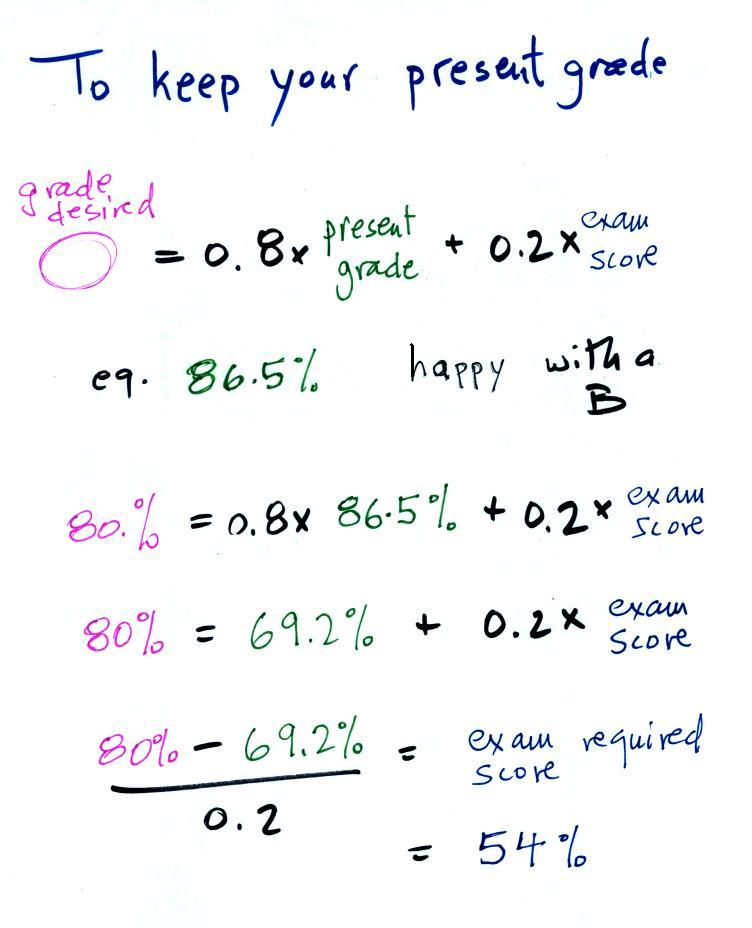 To keep your present grade
grade desired = 0.8x present grade + 0.2x exam score
eg. 86.5% happy with a B
80.% = 0.8x 86.5% + 0.2x exam score
80% = 69.2% + 0.2x exam score
80% - 69.2% = exam score required
0.2
= 54%